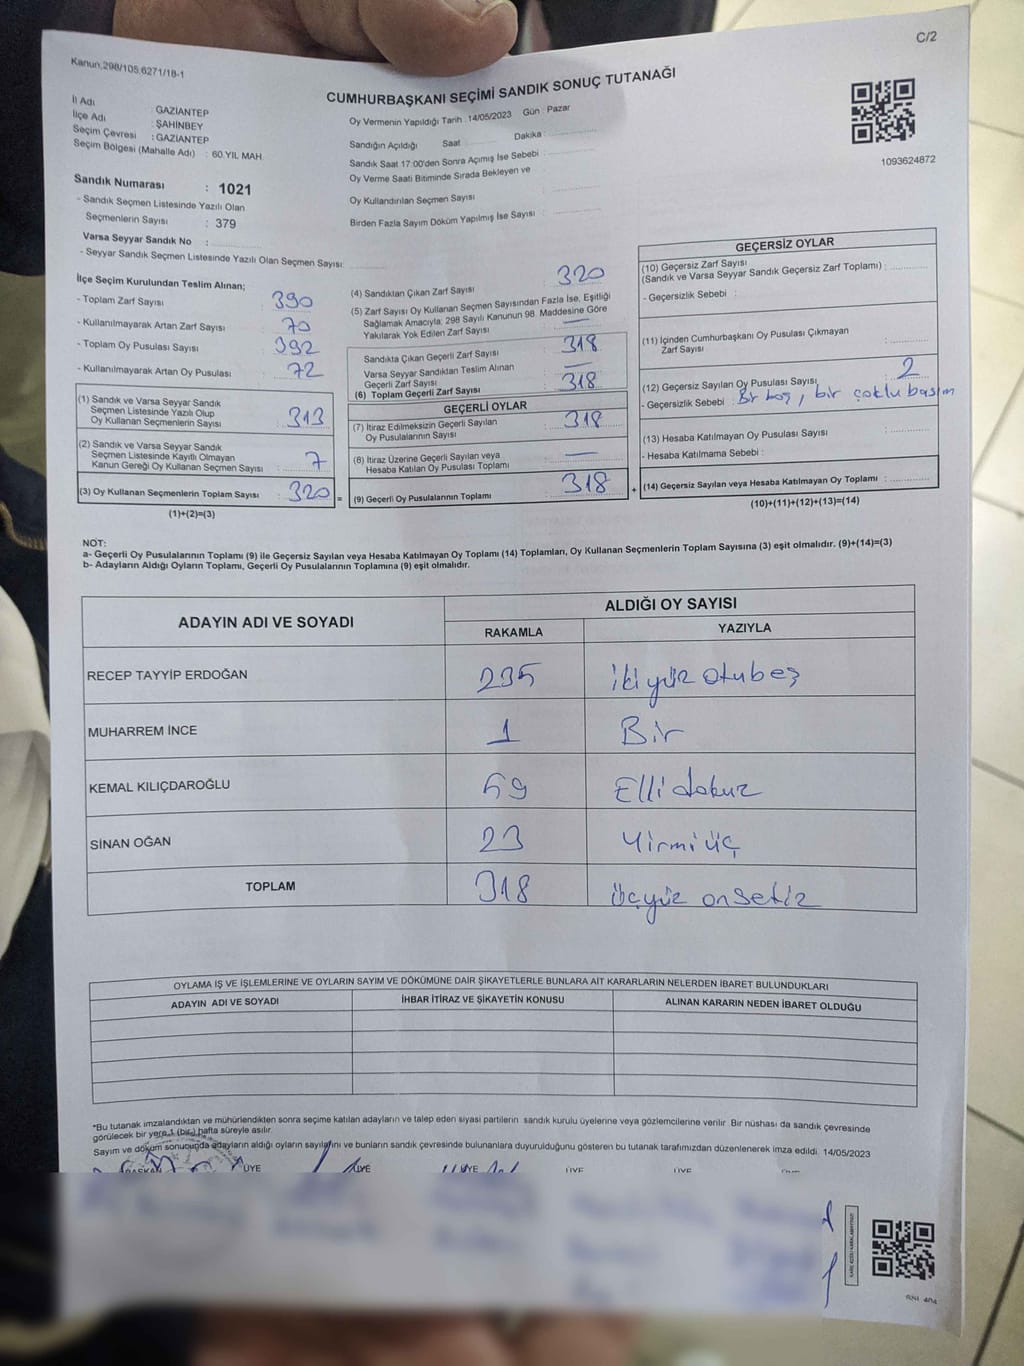 C/2
Kanun:298/105,6271/18-1
CUMHURBAŞKANI SEÇİMİ SANDIK SONUÇ TUTANAĞI
İl Adı : GAZİANTEP
İlçe Adı : ŞAHİNBEY
Seçim Çevresi : GAZİANTEP
Seçim Bölgesi (Mahalle Adı) : 60.YIL MAH.
Sandık Numarası : 1021
- Sandık Seçmen Listesinde Yazılı Olan
Seçmenlerin Sayısı : 379
Varsa Seyyar Sandık No :
- Seyyar Sandık Seçmen Listesinde Yazılı Olan Seçmen Sayısı:
Oy Vermenin Yapıldığı Tarih : 14/05/2023 Gün : Pazar
Sandığın Açıldığı Saat Dakika :
Sandık Saat 17:00'den Sonra Açımış İse Sebebi :
Oy Verme Saati Bitiminde Sırada Bekleyen ve
Oy Kullandırılan Seçmen Sayısı
Birden Fazla Sayım Döküm Yapılmış İse Sayısı :
1093624872
İlçe Seçim Kurulundan Teslim Alınan;
- Toplam Zarf Sayısı : 390
- Kullanılmayarak Artan Zarf Sayısı : 70
- Toplam Oy Pusulası Sayısı : 392
- Kullanılmayarak Artan Oy Pusulası : 72
(1) Sandık ve Varsa Seyyar Sandık
Seçmen Listesinde Yazılı Olup
Oy Kullanan Seçmenlerin Sayısı : 313
(2) Sandık ve Varsa Seyyar Sandık
Seçmen Listesinde Kayıtlı Olmayan
Kanun Gereği Oy Kullanan Seçmen Sayısı : 7
(3) Oy Kullanan Seçmenlerin Toplam Sayısı : 320 =
(1)+(2)=(3)
(4) Sandıktan Çıkan Zarf Sayısı : 320
(5) Zarf Sayısı Oy Kullanan Seçmen Sayısından Fazla İse, Eşitliği
Sağlamak Amacıyla; 298 Sayılı Kanunun 98. Maddesine Göre
Yakılarak Yok Edilen Zarf Sayısı : —
Sandıkta Çıkan Geçerli Zarf Sayısı : 318
Varsa Seyyar Sandıktan Teslim Alınan
Geçerli Zarf Sayısı : —
(6) Toplam Geçerli Zarf Sayısı : 318
GEÇERLİ OYLAR
(7) İtiraz Edilmeksizin Geçerli Sayılan
Oy Pusulalarının Sayısı : 318
(8) İtiraz Üzerine Geçerli Sayılan veya
Hesaba Katılan Oy Pusulası Toplamı : —
(9) Geçerli Oy Pusulalarının Toplamı : 318 +
GEÇERSİZ OYLAR
(10) Geçersiz Zarf Sayısı
(Sandık ve Varsa Seyyar Sandık Geçersiz Zarf Toplamı) :
- Geçersizlik Sebebi :
(11) İçinden Cumhurbaşkanı Oy Pusulası Çıkmayan
Zarf Sayısı :
(12) Geçersiz Sayılan Oy Pusulası Sayısı : 2
- Geçersizlik Sebebi : Bir boş, bir çoklu basım
(13) Hesaba Katılmayan Oy Pusulası Sayısı :
- Hesaba Katılmama Sebebi :
(14) Geçersiz Sayılan veya Hesaba Katılmayan Oy Toplamı :
(10)+(11)+(12)+(13)=(14)
NOT:
a- Geçerli Oy Pusulalarının Toplamı (9) ile Geçersiz Sayılan veya Hesaba Katılmayan Oy Toplamı (14) Toplamları, Oy Kullanan Seçmenlerin Toplam Sayısına (3) eşit olmalıdır. (9)+(14)=(3)
b- Adayların Aldığı Oyların Toplamı, Geçerli Oy Pusulalarının Toplamına (9) eşit olmalıdır.
ADAYIN ADI VE SOYADI ALDIĞI OY SAYISI
RAKAMLA YAZIYLA
RECEP TAYYİP ERDOĞAN 235 İkiyüz otubeş
MUHARREM İNCE 1 Bir
KEMAL KILIÇDAROĞLU 59 Ellidokuz
SİNAN OĞAN 23 Yirmiüç
TOPLAM 318 üçyüz onsekiz
OYLAMA İŞ VE İŞLEMLERİNE VE OYLARIN SAYIM VE DÖKÜMÜNE DAİR ŞİKAYETLERLE BUNLARA AİT KARARLARIN NELERDEN İBARET BULUNDUKLARI
ADAYIN ADI VE SOYADI İHBAR İTİRAZ VE ŞİKAYETİN KONUSU ALINAN KARARIN NEDEN İBARET OLDUĞU
*Bu tutanak imzalandıktan ve mühürlendikten sonra seçime katılan adayların ve talep eden siyasi partilerin sandık kurulu üyelerine veya gözlemcilerine verilir. Bir nüshası da sandık çevresinde
görülecek bir yere 1 (bir) hafta süreyle asılır.
Sayım ve döküm sonucunda adayların aldığı oyların sayılarını ve bunların sandık çevresinde bulunanlara duyurulduğunu gösteren bu tutanak tarafımızdan düzenlenerek imza edildi. 14/05/2023
BAŞKAN ÜYE ÜYE ÜYE ÜYE ÜYE